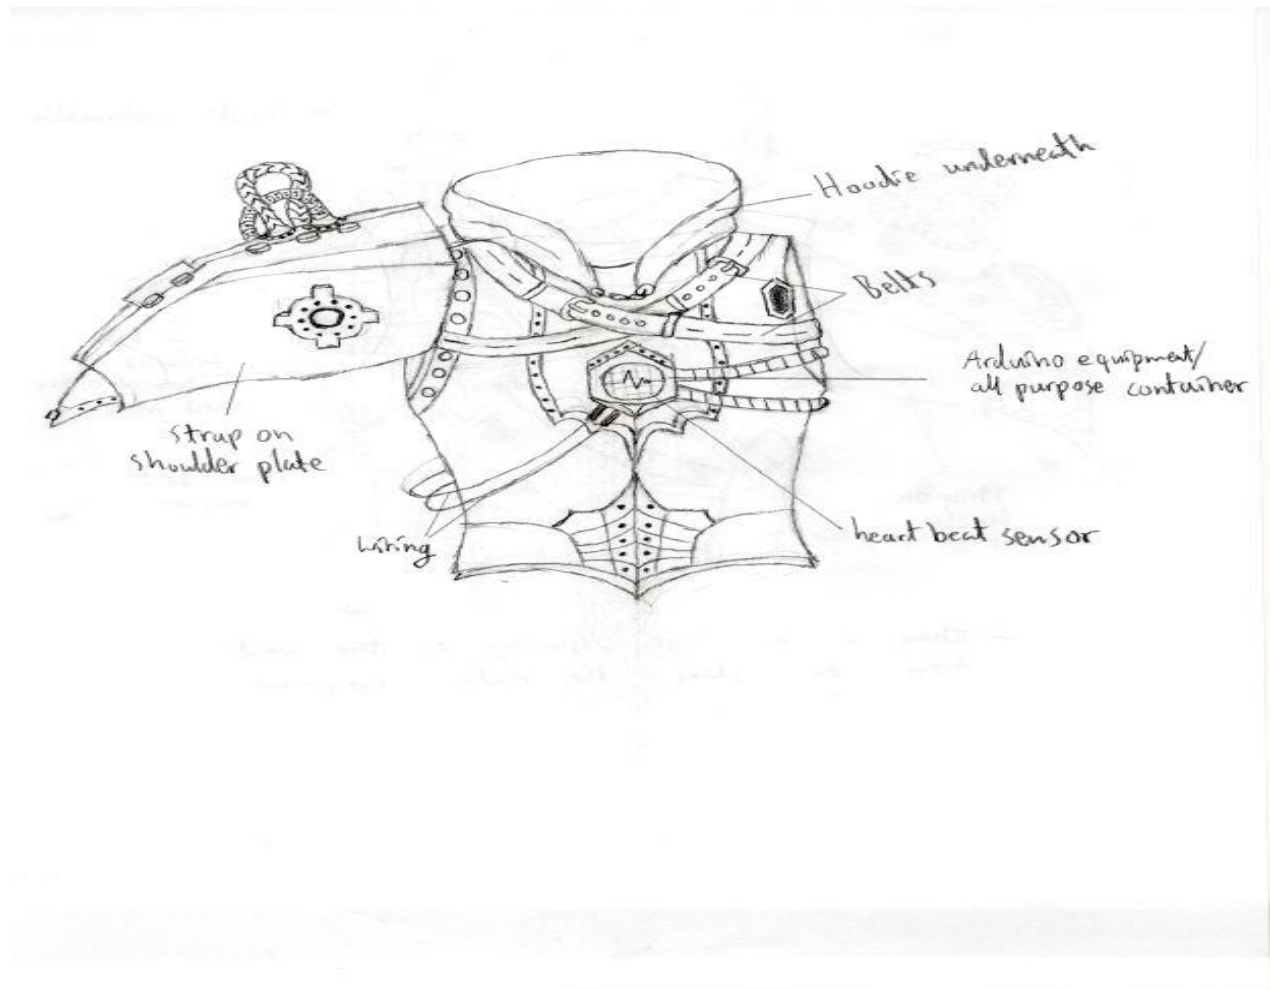 Hoodie underneath
Belts
Arduino equipment/
all purpose container
strap on
shoulder plate
wiring
heart beat sensor